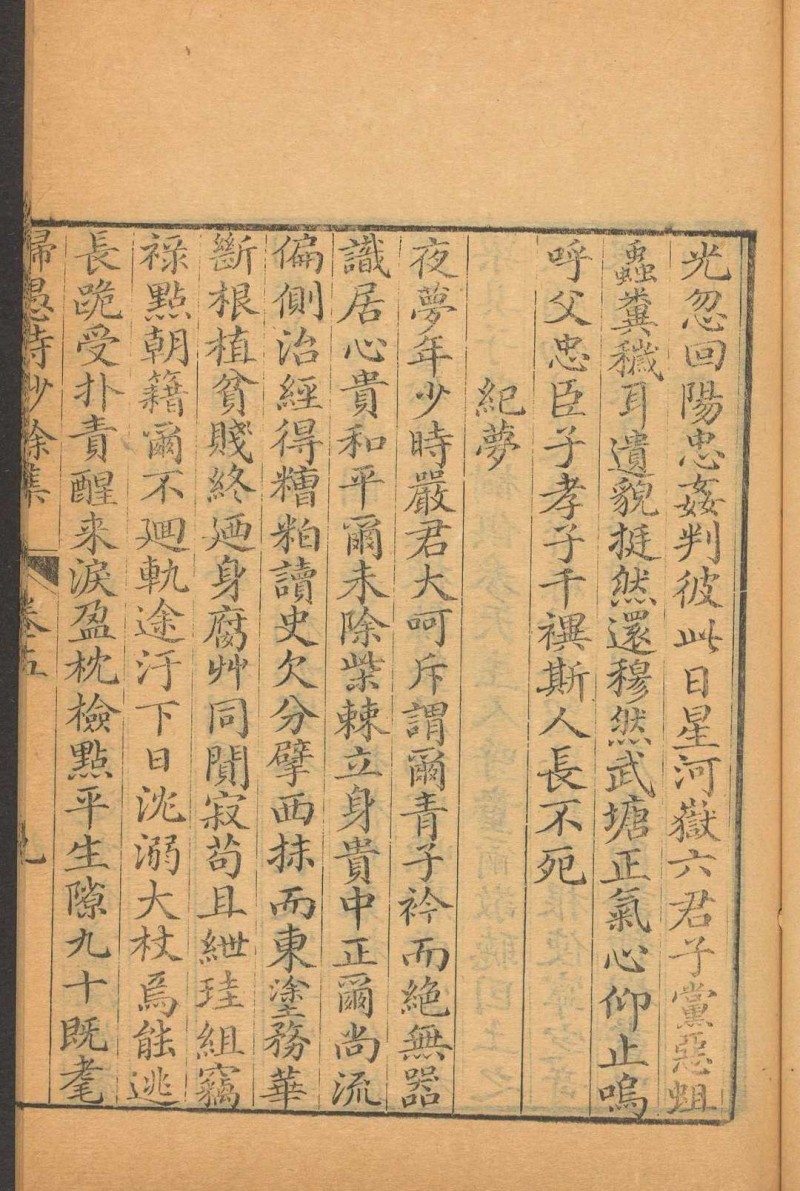 光忽回陽忠姦判彼此日星河嶽六君子黨惡蛆
蟲糞穢耳遺貌挺然還穆然武塘正氣心仰止嗚
呼父忠臣子孝子千禩斯人長不死
紀夢
夜夢年少時嚴君大呵斥謂爾青子衿而絶無器
識居心貴和平爾未除柴棘立身貴中正爾尚流
偏側治經得糟粕讀史欠分擘西抹而東塗務華
斷根植貧賤終廼身腐艸同閴寂苟且紲珪組竊
祿點朝籍爾不廻軌途汙下日沈溺大杖焉能逃
長跪受扑責醒来淚盈枕檢點平生隙九十既耄
歸愚詩鈔餘集 卷五 九